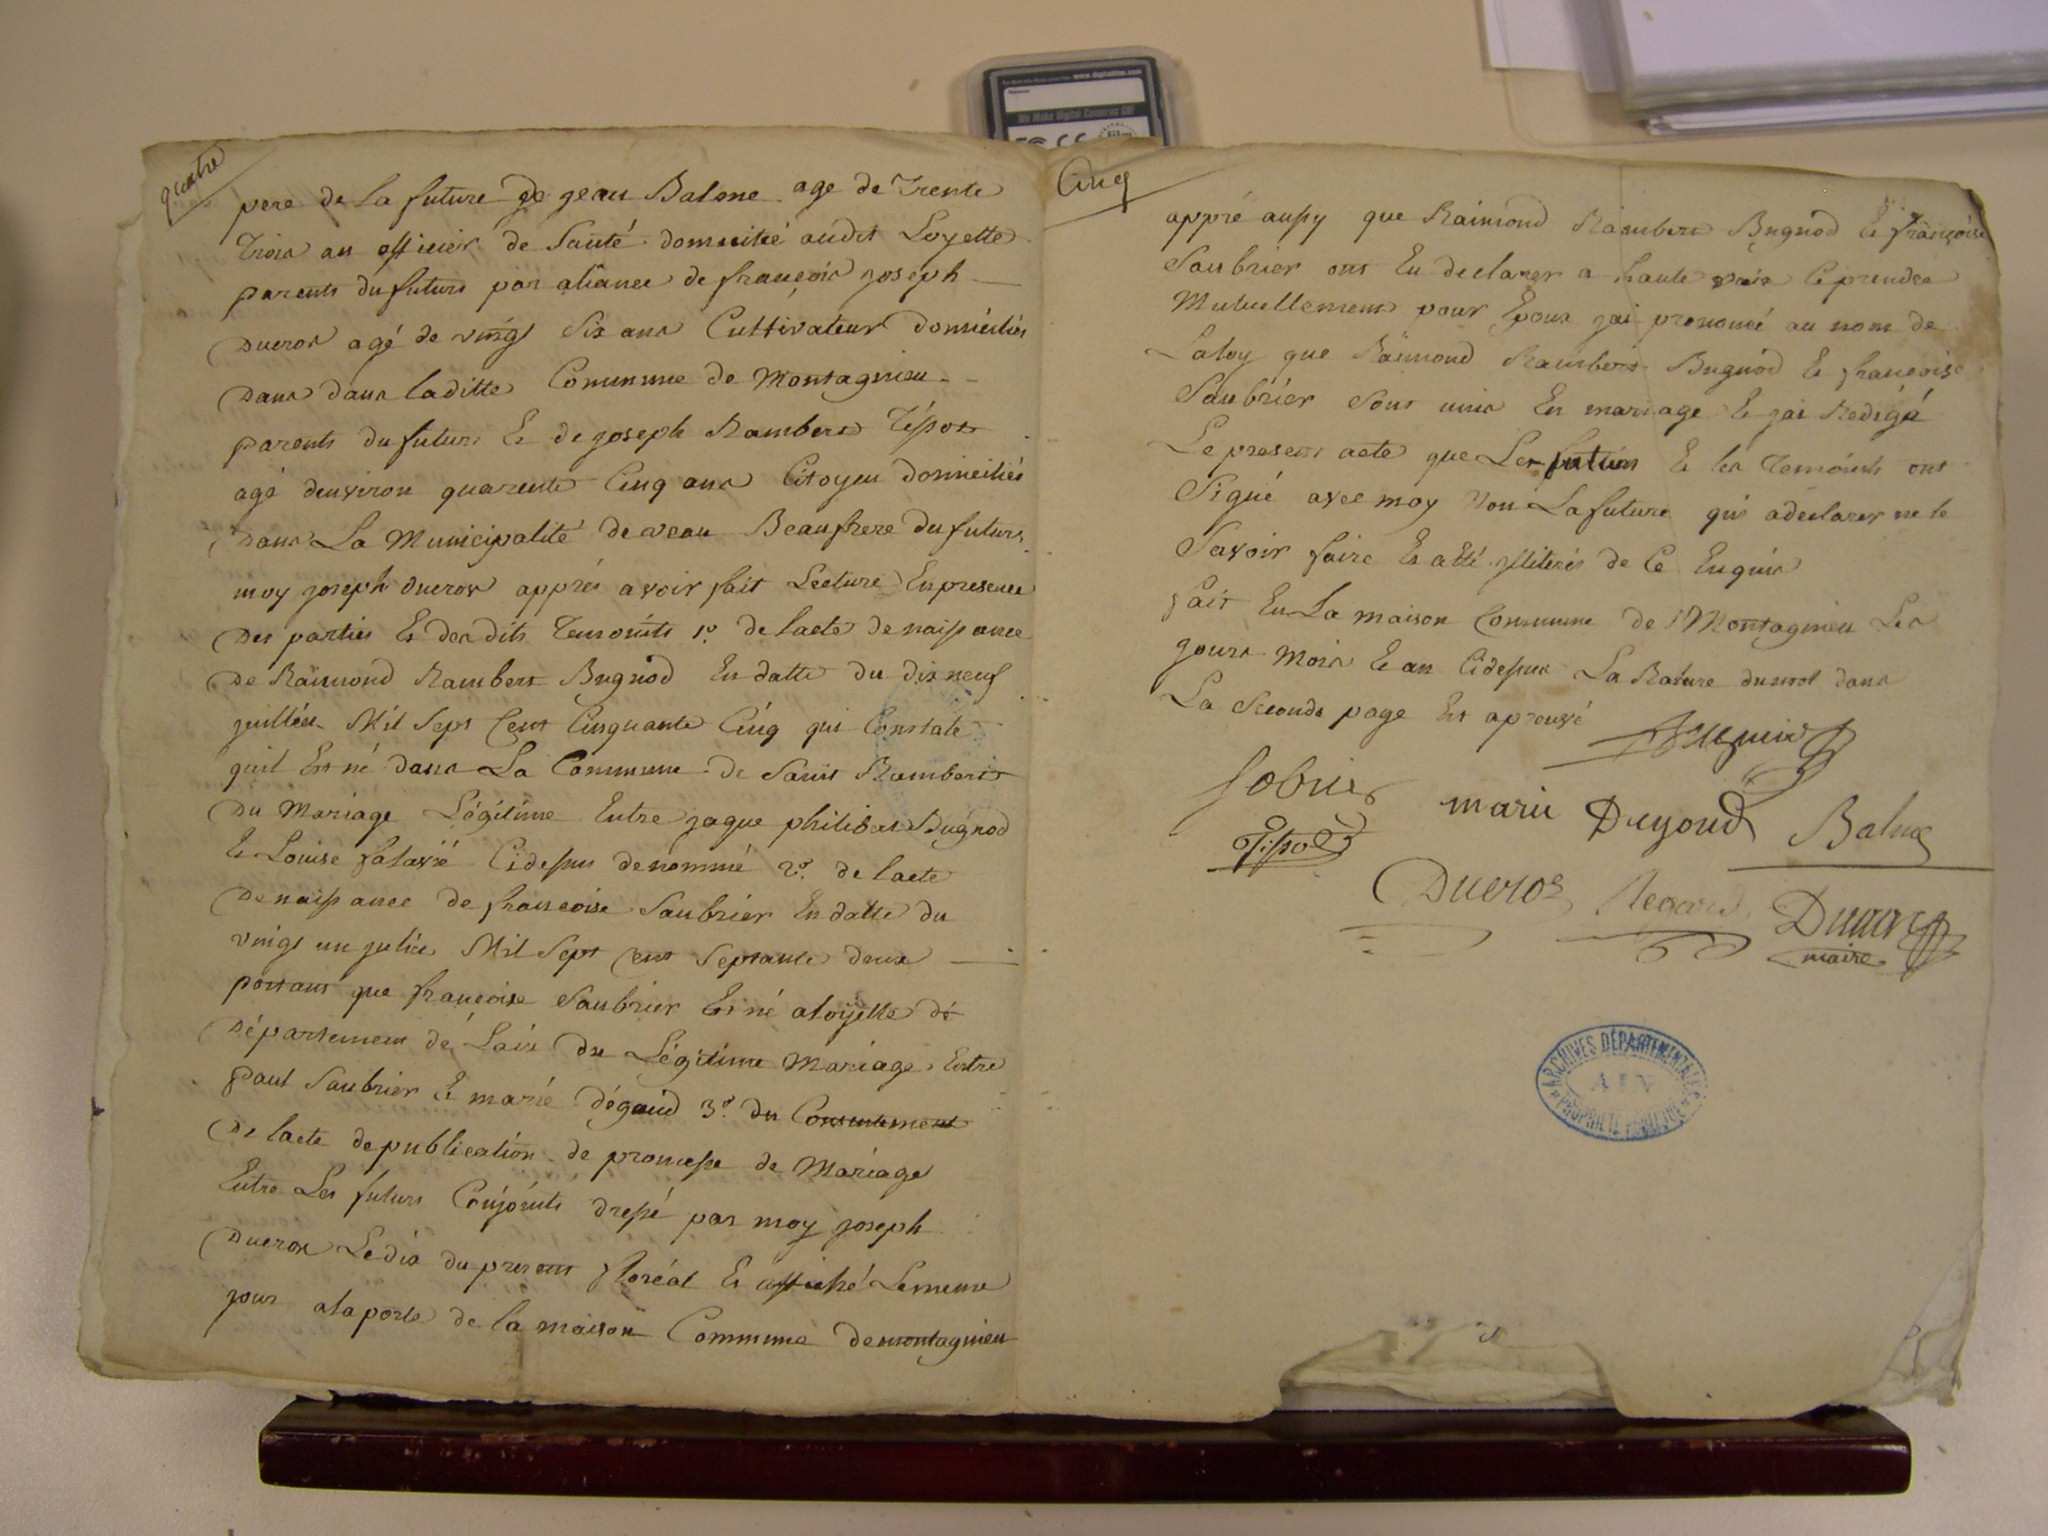 quatre
pere de la future de jean Balone age de Trente
Trois an officier de Santé domicilié audit Loyette
parents du futurs par aliance de françois joseph
Ducros agé de vingt Six ans Cultivateur domiciliés
Dans dans laditte Commune de Montagnieu
parents du futurs Et de joseph Rambert Tépot
agé denviron quarente Cinq ans Citoyen domiciliés
Dans La Municipalité de veau Beaufrere du futurs
moy joseph Ducros apprés avoir fait Lecture En presence
Des parties Et des dits Temoints 1º. de lacte de naissance
De Raimond Rambert Bugnod En datte du dix neuf
juillet Mil Sept Cent Cinquante Cinq qui Constate
quil Est né dans La Commune de Saint Rambert
Du Mariage Légitime Entre jaque philibert Bugnod
Et Louise falavié Cidessus denommé 2º. de lacte
De naissance de francoise Saubrier En datte du
vingt un juliet Mil Sept Cent Septante deux
portant que françoise Saubrier Est né a loyette dé
Département dé Lain du Légitime Mariage Entre
paul Saubrier Et marie dégoud 3º. du Consentement
De lacte de publication de promesse de Mariage
Entre Les futurs Conjoints dressé par moy joseph
Ducros Le dix du present floréal Et affiché Lememe
jour alaporte de la maison Commune demontagnieu
Cinq
appré aussy que Raimond Rambert Bugnod Et françoise
Saubrier ont Eu declarer a haute voix Ceprendre
Mutuellement pour Epoux jai prononcé au nom de
Laloy que Raimond Rambert Bugnod Et francoise
Saubrier Sont unis En mariage Et jai Redigé
Le present acte que Les futurs Et les Temoints ont
Signé avec moy Non La future qui adeclarer ne le
Savoir faire Et a Eté de Ce Enquis
fait En La maison Commune de Montagnieu Les
jours Mois Et an Cidessus La Rature dumot dans
La Seconde page Est aprouvé
Sobrier
marie Degoud
Tipot
Ducros
Ducros
maire
ARCHIVES DÉPARTEMENTALES
AIN
PROPRIÉTÉ PUBLIQUE
www.digitalfilm.com
We Make Digital Cameras GO!
film